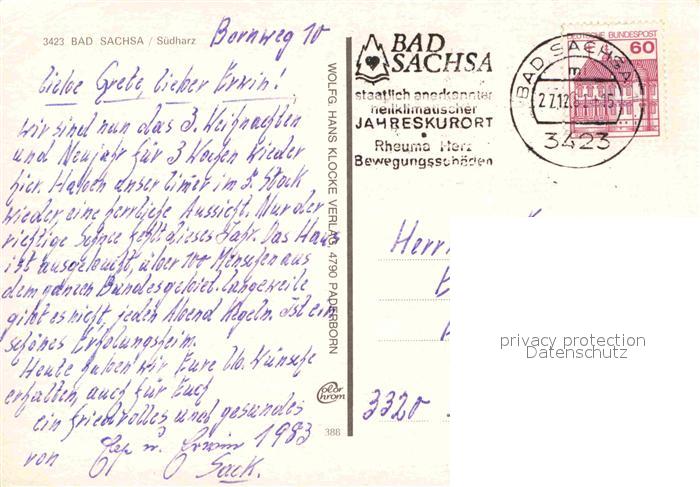 3423 BAD SACHSA / Südharz Bornweg 10
liebe Grete, lieber Erwin!
wir sind nun das 3. Weihnachten
und Neujahr für 3 Wochen wieder
hier. Haben unser Zimer im 5. Stock
wieder, eine herrliche Aussicht. Nur der
richtige Schnee fehlt dieses Jahr. Das Haus
ist ausgebucht, über 700 Menschen aus
dem ganzen Bundesgebiet. Langeweile
gibt es nicht, jeden Abend Kegeln. Ist ein
schönes Erholungsheim.
Heute haben wir Eure lb. Wünsche
erhalten, auch für Euch
ein friedvolles und gesundes
1983
von u. Erwin
Sack.
WOLFG. HANS KLOCKE VERLAG, 4790 PADERBORN
color chrom
388
BAD SACHSA
staatlich anerkannter
heilklimatischer
JAHRESKURORT
Rheuma Herz
Bewegungsschäden
BAD SACHSA
m
27.12.
3423
DEUTSCHE BUNDESPOST
60
Herrn
3320
privacy protection
Datenschutz